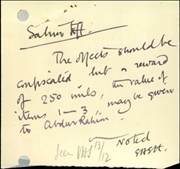 The objects should be
confiscated but a reward
of 250 mils, the value of
items 1–3, may be given
to Abdur Rahim.
Noted
Seen 13/12